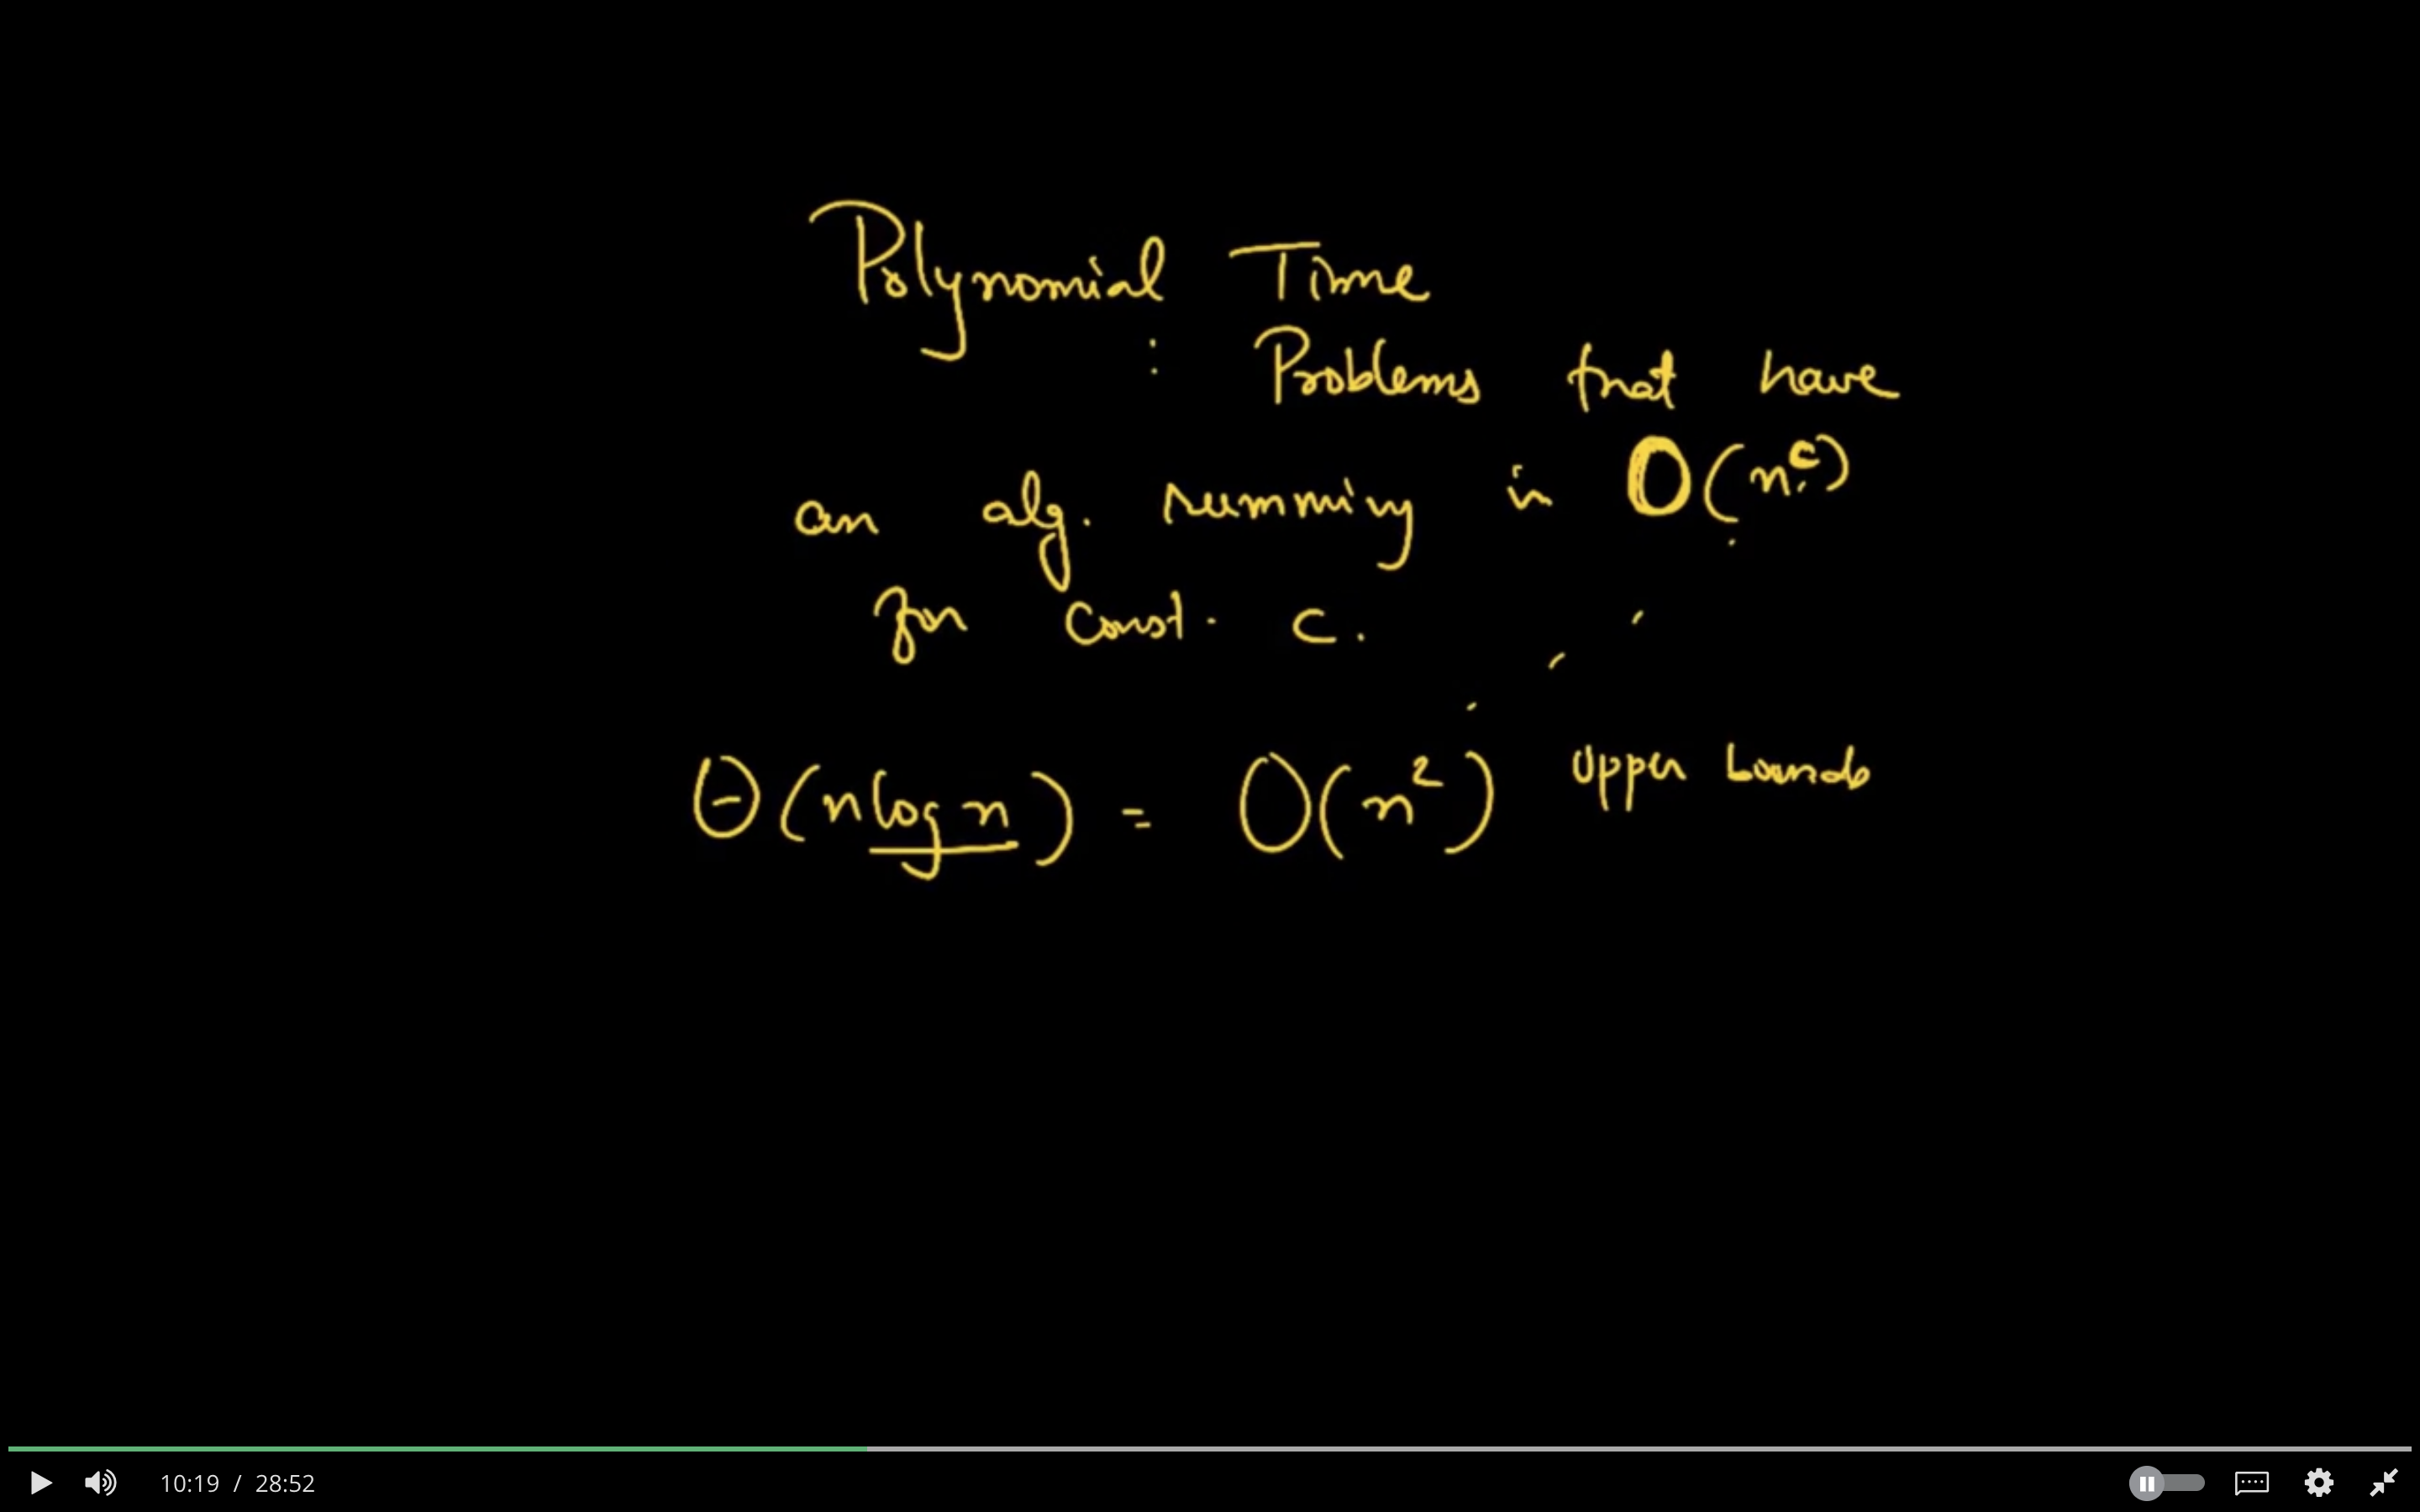 Polynomial Time
: Problems that have
an alg. running in O(n^c)
for const. c.
Θ(n log n) = O(n²) upper bounds
10:19 / 28:52